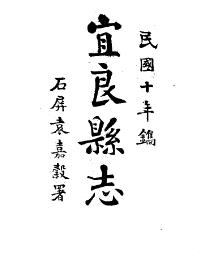 民國十年鐫
宜良縣志
石屏袁嘉穀署